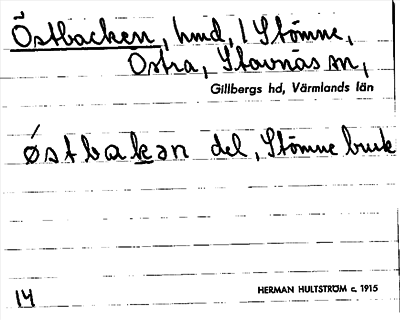 Östbacken, hmd, / Stömne,
Östra, Stavnäs sn,
Gillbergs hd, Värmlands län
østbakən del, Stömne bruk
14
HERMAN HULTSTRÖM c. 1915